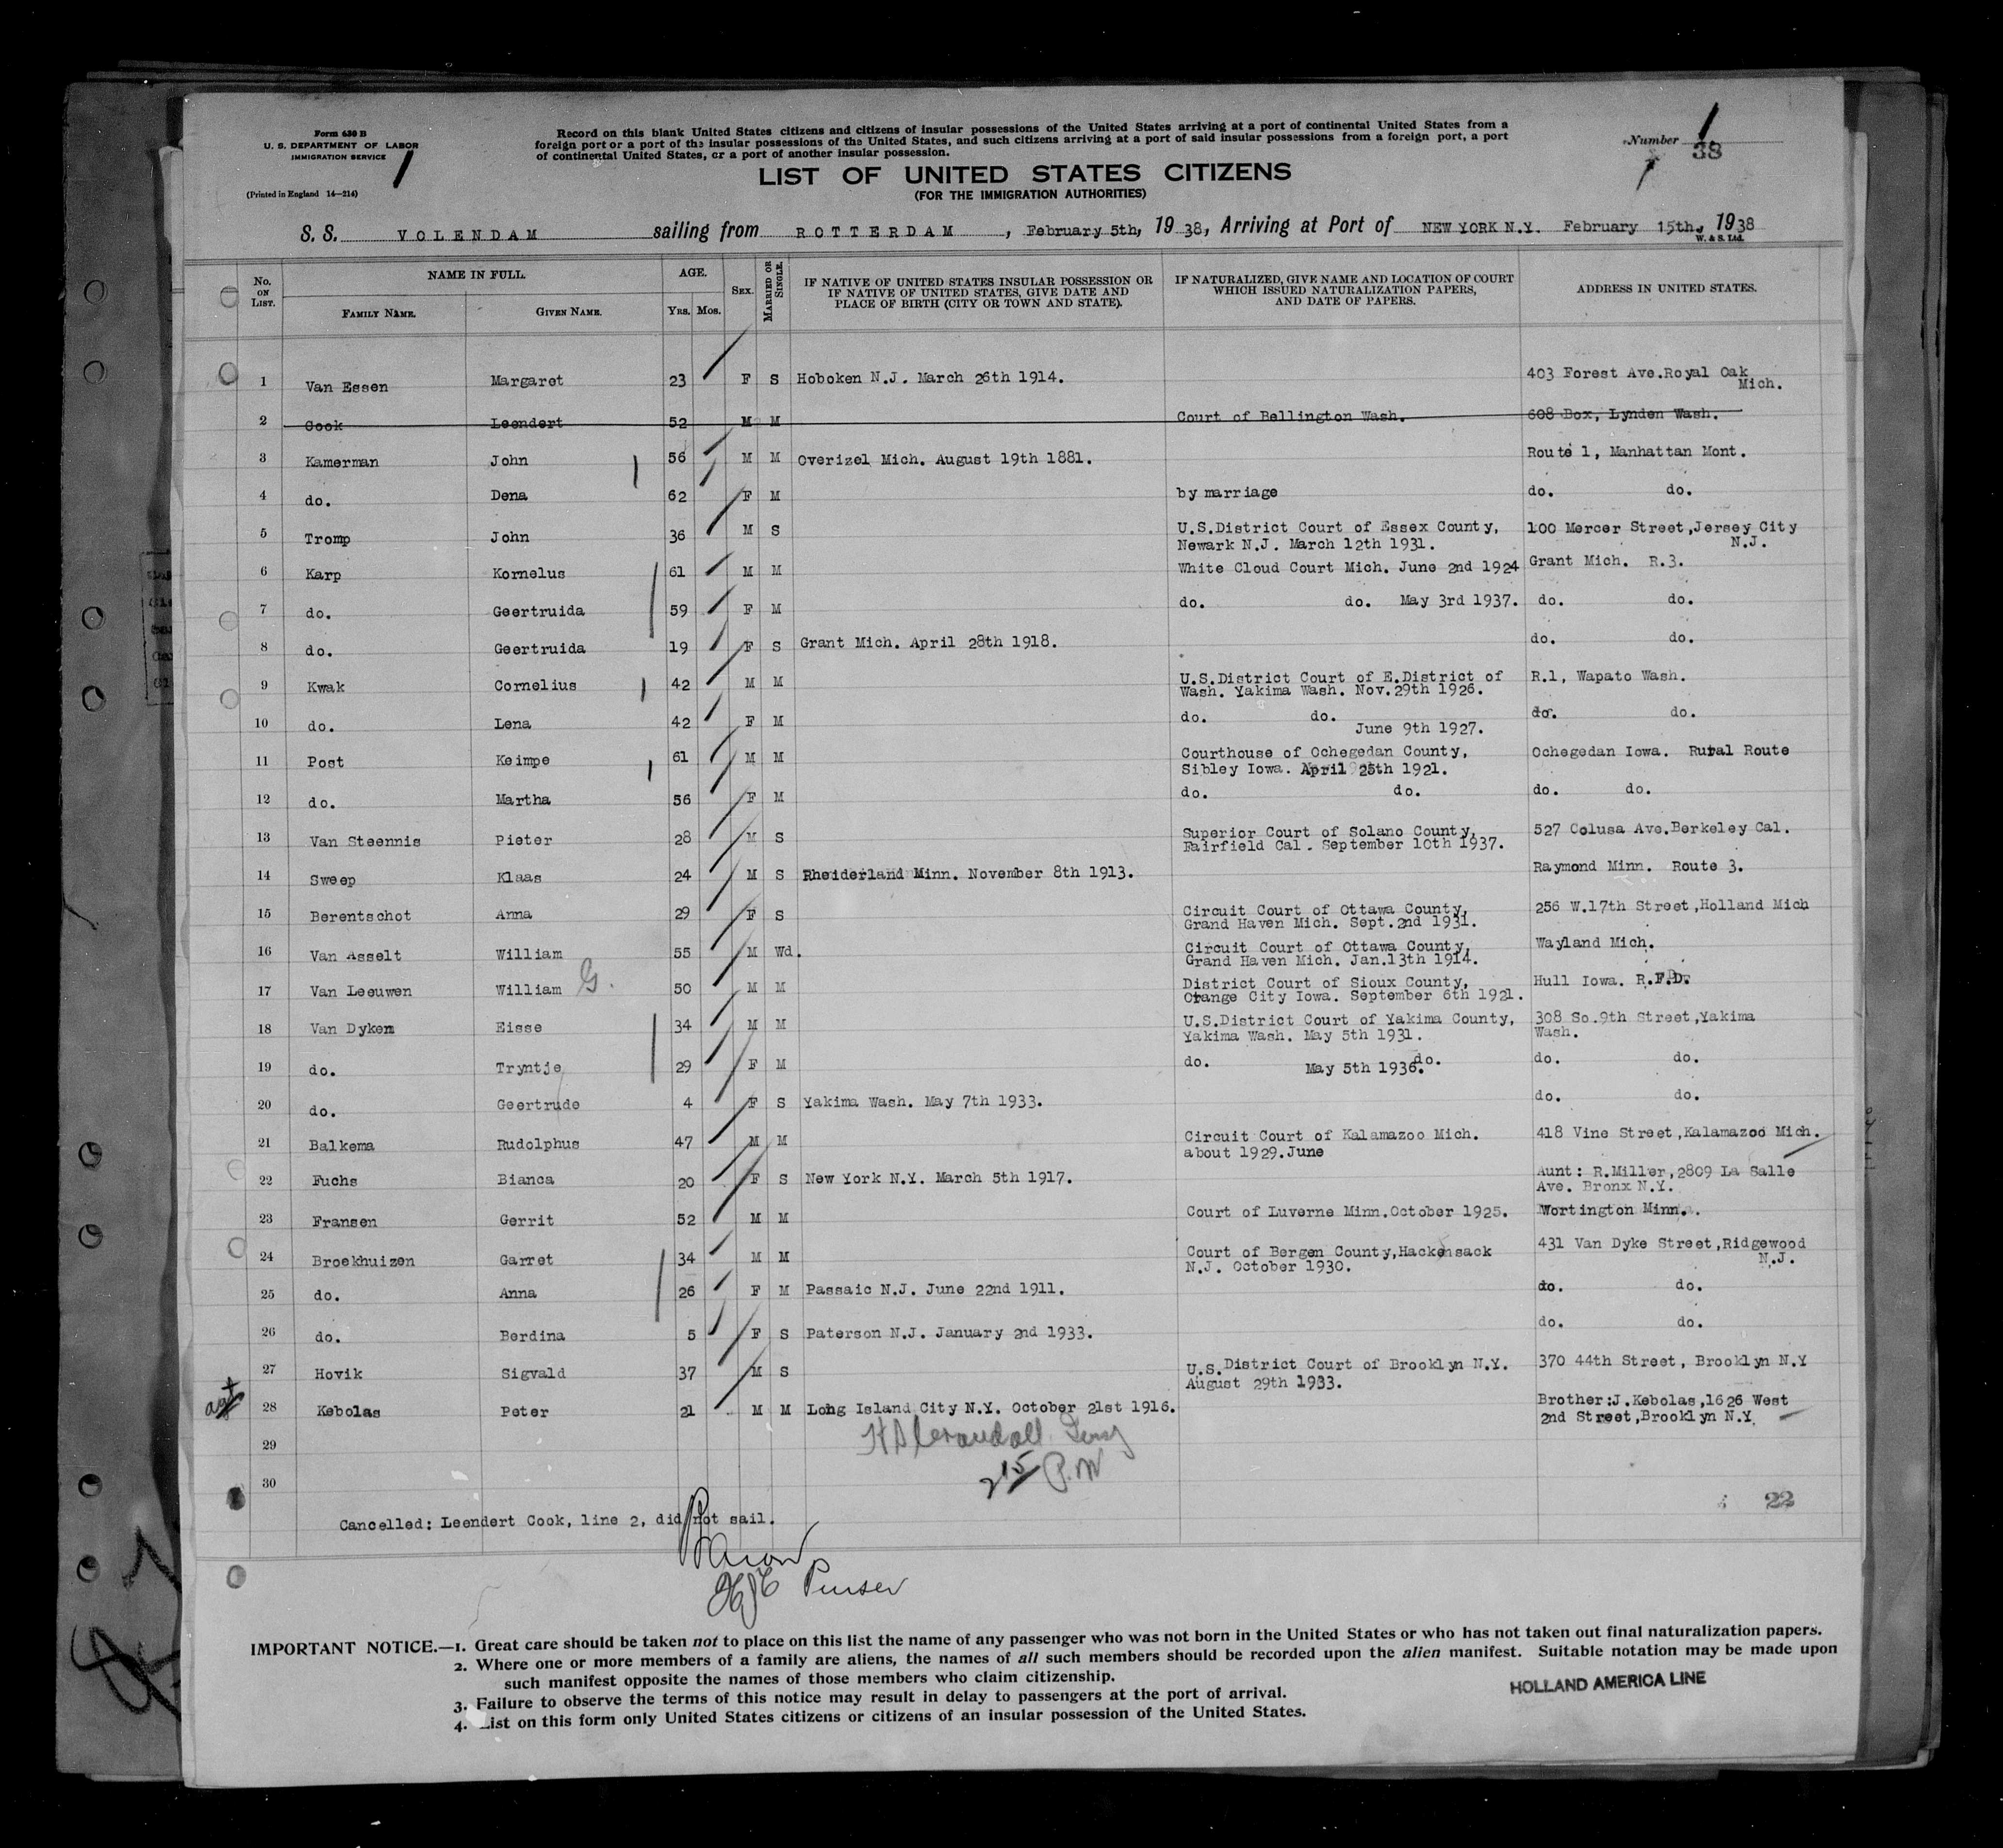 Form 630 B
U. S. DEPARTMENT OF LABOR
IMMIGRATION SERVICE
(Printed in England 14—214)
Record on this blank United States citizens and citizens of insular possessions of the United States arriving at a port of continental United States from a
foreign port or a port of the insular possessions of the United States, and such citizens arriving at a port of said insular possessions from a foreign port, a port
of continental United States, or a port of another insular possession.
Number 1
38
LIST OF UNITED STATES CITIZENS
(FOR THE IMMIGRATION AUTHORITIES)
S. S. VOLENDAM sailing from ROTTERDAM, February 5th, 1938, Arriving at Port of NEW YORK N.Y. February 15th, 1938
W. & S. Ltd.
No. ON LIST. NAME IN FULL. FAMILY NAME. GIVEN NAME. AGE. YRS. MOS. SEX. MARRIED OR SINGLE. IF NATIVE OF UNITED STATES INSULAR POSSESSION OR IF NATIVE OF UNITED STATES, GIVE DATE AND PLACE OF BIRTH (CITY OR TOWN AND STATE). IF NATURALIZED, GIVE NAME AND LOCATION OF COURT WHICH ISSUED NATURALIZATION PAPERS, AND DATE OF PAPERS. ADDRESS IN UNITED STATES.
1 Van Essen Margaret 23 F S Hoboken N.J. March 26th 1914. 403 Forest Ave.Royal Oak Mich.
2 Cook Leendert 52 M M Court of Bellington Wash. 608 Box, Lynden Wash.
3 Kamerman John 56 M M Overizel Mich. August 19th 1881. Route 1, Manhattan Mont.
4 do. Dena 62 F M by marriage do. do.
5 Tromp John 36 M S U.S.District Court of Essex County, Newark N.J. March 12th 1931. 100 Mercer Street,Jersey City N.J.
6 Karp Kornelus 61 M M White Cloud Court Mich. June 2nd 1924 Grant Mich. R.3.
7 do. Geertruida 59 F M do. do. May 3rd 1937. do. do.
8 do. Geertruida 19 F S Grant Mich. April 28th 1918. do. do.
9 Kwak Cornelius 42 M M U.S.District Court of E.District of Wash. Yakima Wash. Nov.29th 1926. R.1, Wapato Wash.
10 do. Lena 42 F M do. do. June 9th 1927. do. do.
11 Post Keimpe 61 M M Courthouse of Ochegedan County, Sibley Iowa. April 25th 1921. Ochegedan Iowa. Rural Route
12 do. Martha 56 F M do. do. do. do.
13 Van Steennis Pieter 28 M S Superior Court of Solano County, Fairfield Cal. September 10th 1937. 527 Colusa Ave.Berkeley Cal.
14 Sweep Klaas 24 M S Rheiderland Minn. November 8th 1913. Raymond Minn. Route 3.
15 Berentschot Anna 29 F S Circuit Court of Ottawa County, Grand Haven Mich. Sept.2nd 1931. 256 W.17th Street,Holland Mich
16 Van Asselt William 55 M Wd. Circuit Court of Ottawa County, Grand Haven Mich. Jan.13th 1914. Wayland Mich.
17 Van Leeuwen William G. 50 M M District Court of Sioux County, Orange City Iowa. September 6th 1921. Hull Iowa. R.F.D.
18 Van Dyken Eisse 34 M M U.S.District Court of Yakima County, Yakima Wash. May 5th 1931. 308 So.9th Street,Yakima Wash.
19 do. Tryntje 29 F M do. do. May 5th 1936. do. do.
20 do. Geertrude 4 F S Yakima Wash. May 7th 1933. do. do.
21 Balkema Rudolphus 47 M M Circuit Court of Kalamazoo Mich. about 1929.June 418 Vine Street,Kalamazoo Mich.
22 Fuchs Bianca 20 F S New York N.Y. March 5th 1917. Aunt: R.Miller,2809 La Salle Ave. Bronx N.Y.
23 Fransen Gerrit 52 M M Court of Luverne Minn.October 1925. Wortington Minn.
24 Broekhuizen Garret 34 M M Court of Bergen County,Hackensack N.J. October 1930. 431 Van Dyke Street,Ridgewood N.J.
25 do. Anna 26 F M Passaic N.J. June 22nd 1911. do. do.
26 do. Berdina 5 F S Paterson N.J. January 2nd 1933. do. do.
27 Hovik Sigvald 37 M S U.S.District Court of Brooklyn N.Y. August 29th 1933. 370 44th Street, Brooklyn N.Y
28 Kebolas Peter 21 M M Long Island City N.Y. October 21st 1916. Brother:J.Kebolas,1626 West 2nd Street,Brooklyn N.Y.
29
30
2 15 P.M
22
Cancelled: Leendert Cook, line 2, did not sail.
Purser
IMPORTANT NOTICE.—1. Great care should be taken not to place on this list the name of any passenger who was not born in the United States or who has not taken out final naturalization papers.
2. Where one or more members of a family are aliens, the names of all such members should be recorded upon the alien manifest. Suitable notation may be made upon
such manifest opposite the names of those members who claim citizenship.
3. Failure to observe the terms of this notice may result in delay to passengers at the port of arrival.
4. List on this form only United States citizens or citizens of an insular possession of the United States.
HOLLAND AMERICA LINE